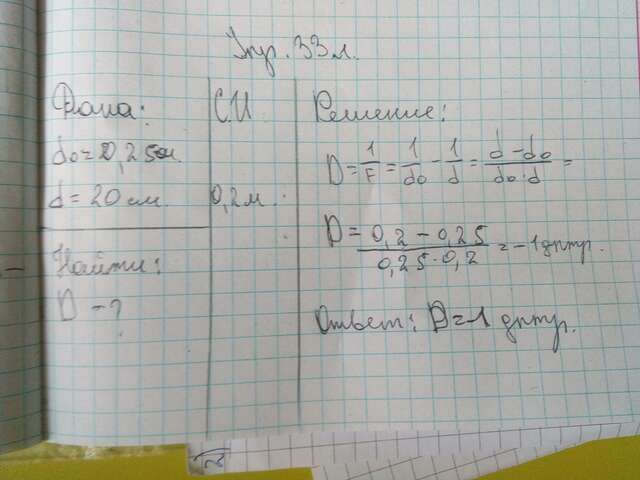 Упр. 33 л.
Дано:
d₀ = 0,25 м.
d = 20 см.
Найти:
D - ?
СИ
0,2 м.
Решение:
D = 1/F = 1/d₀ - 1/d = (d - d₀)/(d₀·d) =
D = (0,2 - 0,25)/(0,25·0,2) = -1 дптр.
Ответ: D = -1 дптр.